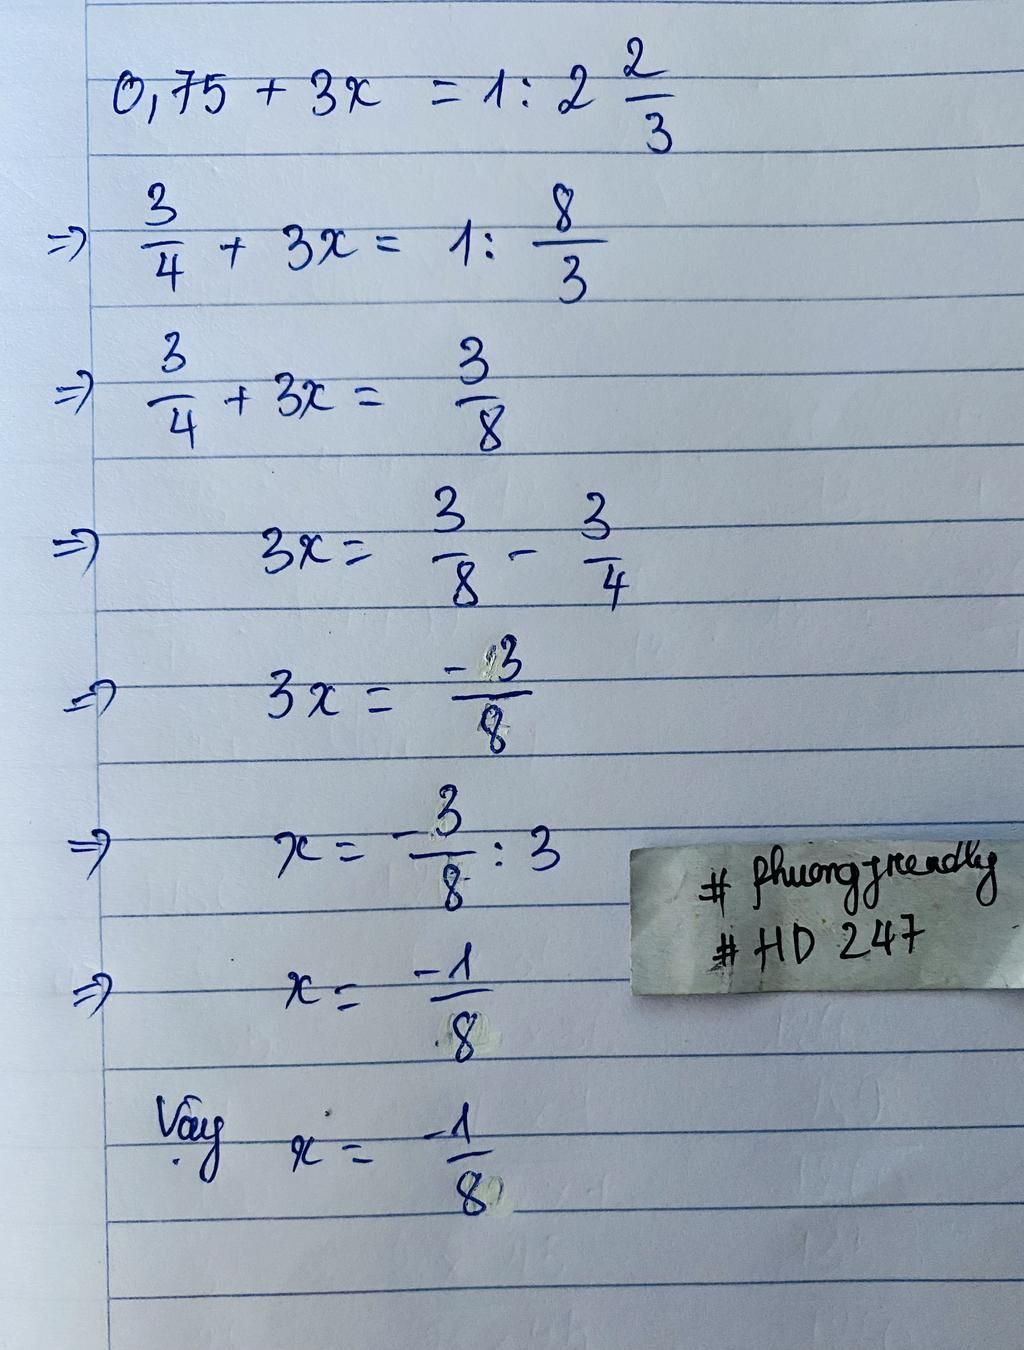 0,75 + 3x = 1 : 2 2/3
=> 3/4 + 3x = 1 : 8/3
=> 3/4 + 3x = 3/8
=> 3x = 3/8 - 3/4
=> 3x = -3/8
=> x = -3/8 : 3
=> x = -1/8
Vậy x = -1/8
# phuongfreadly
# HD 247